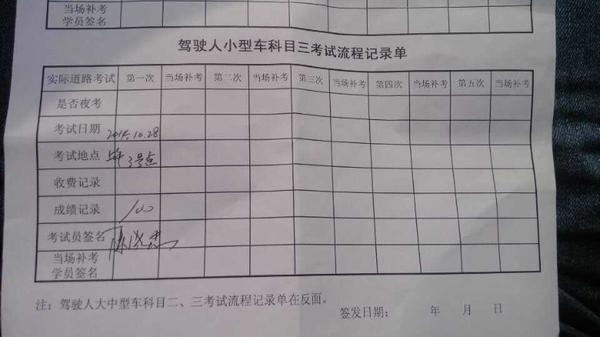 当场补考
学员签名
驾驶人小型车科目三考试流程记录单
实际道路考试 第一次 当场补考 第二次 当场补考 第三次 当场补考 第四次 当场补考 第五次 当场补考
是否夜考
考试日期 2015.10.28
考试地点 3号点
收费记录
成绩记录 100
考试员签名
当场补考
学员签名
注：驾驶人大中型车科目二、三考试流程记录单在反面。
签发日期： 年 月 日